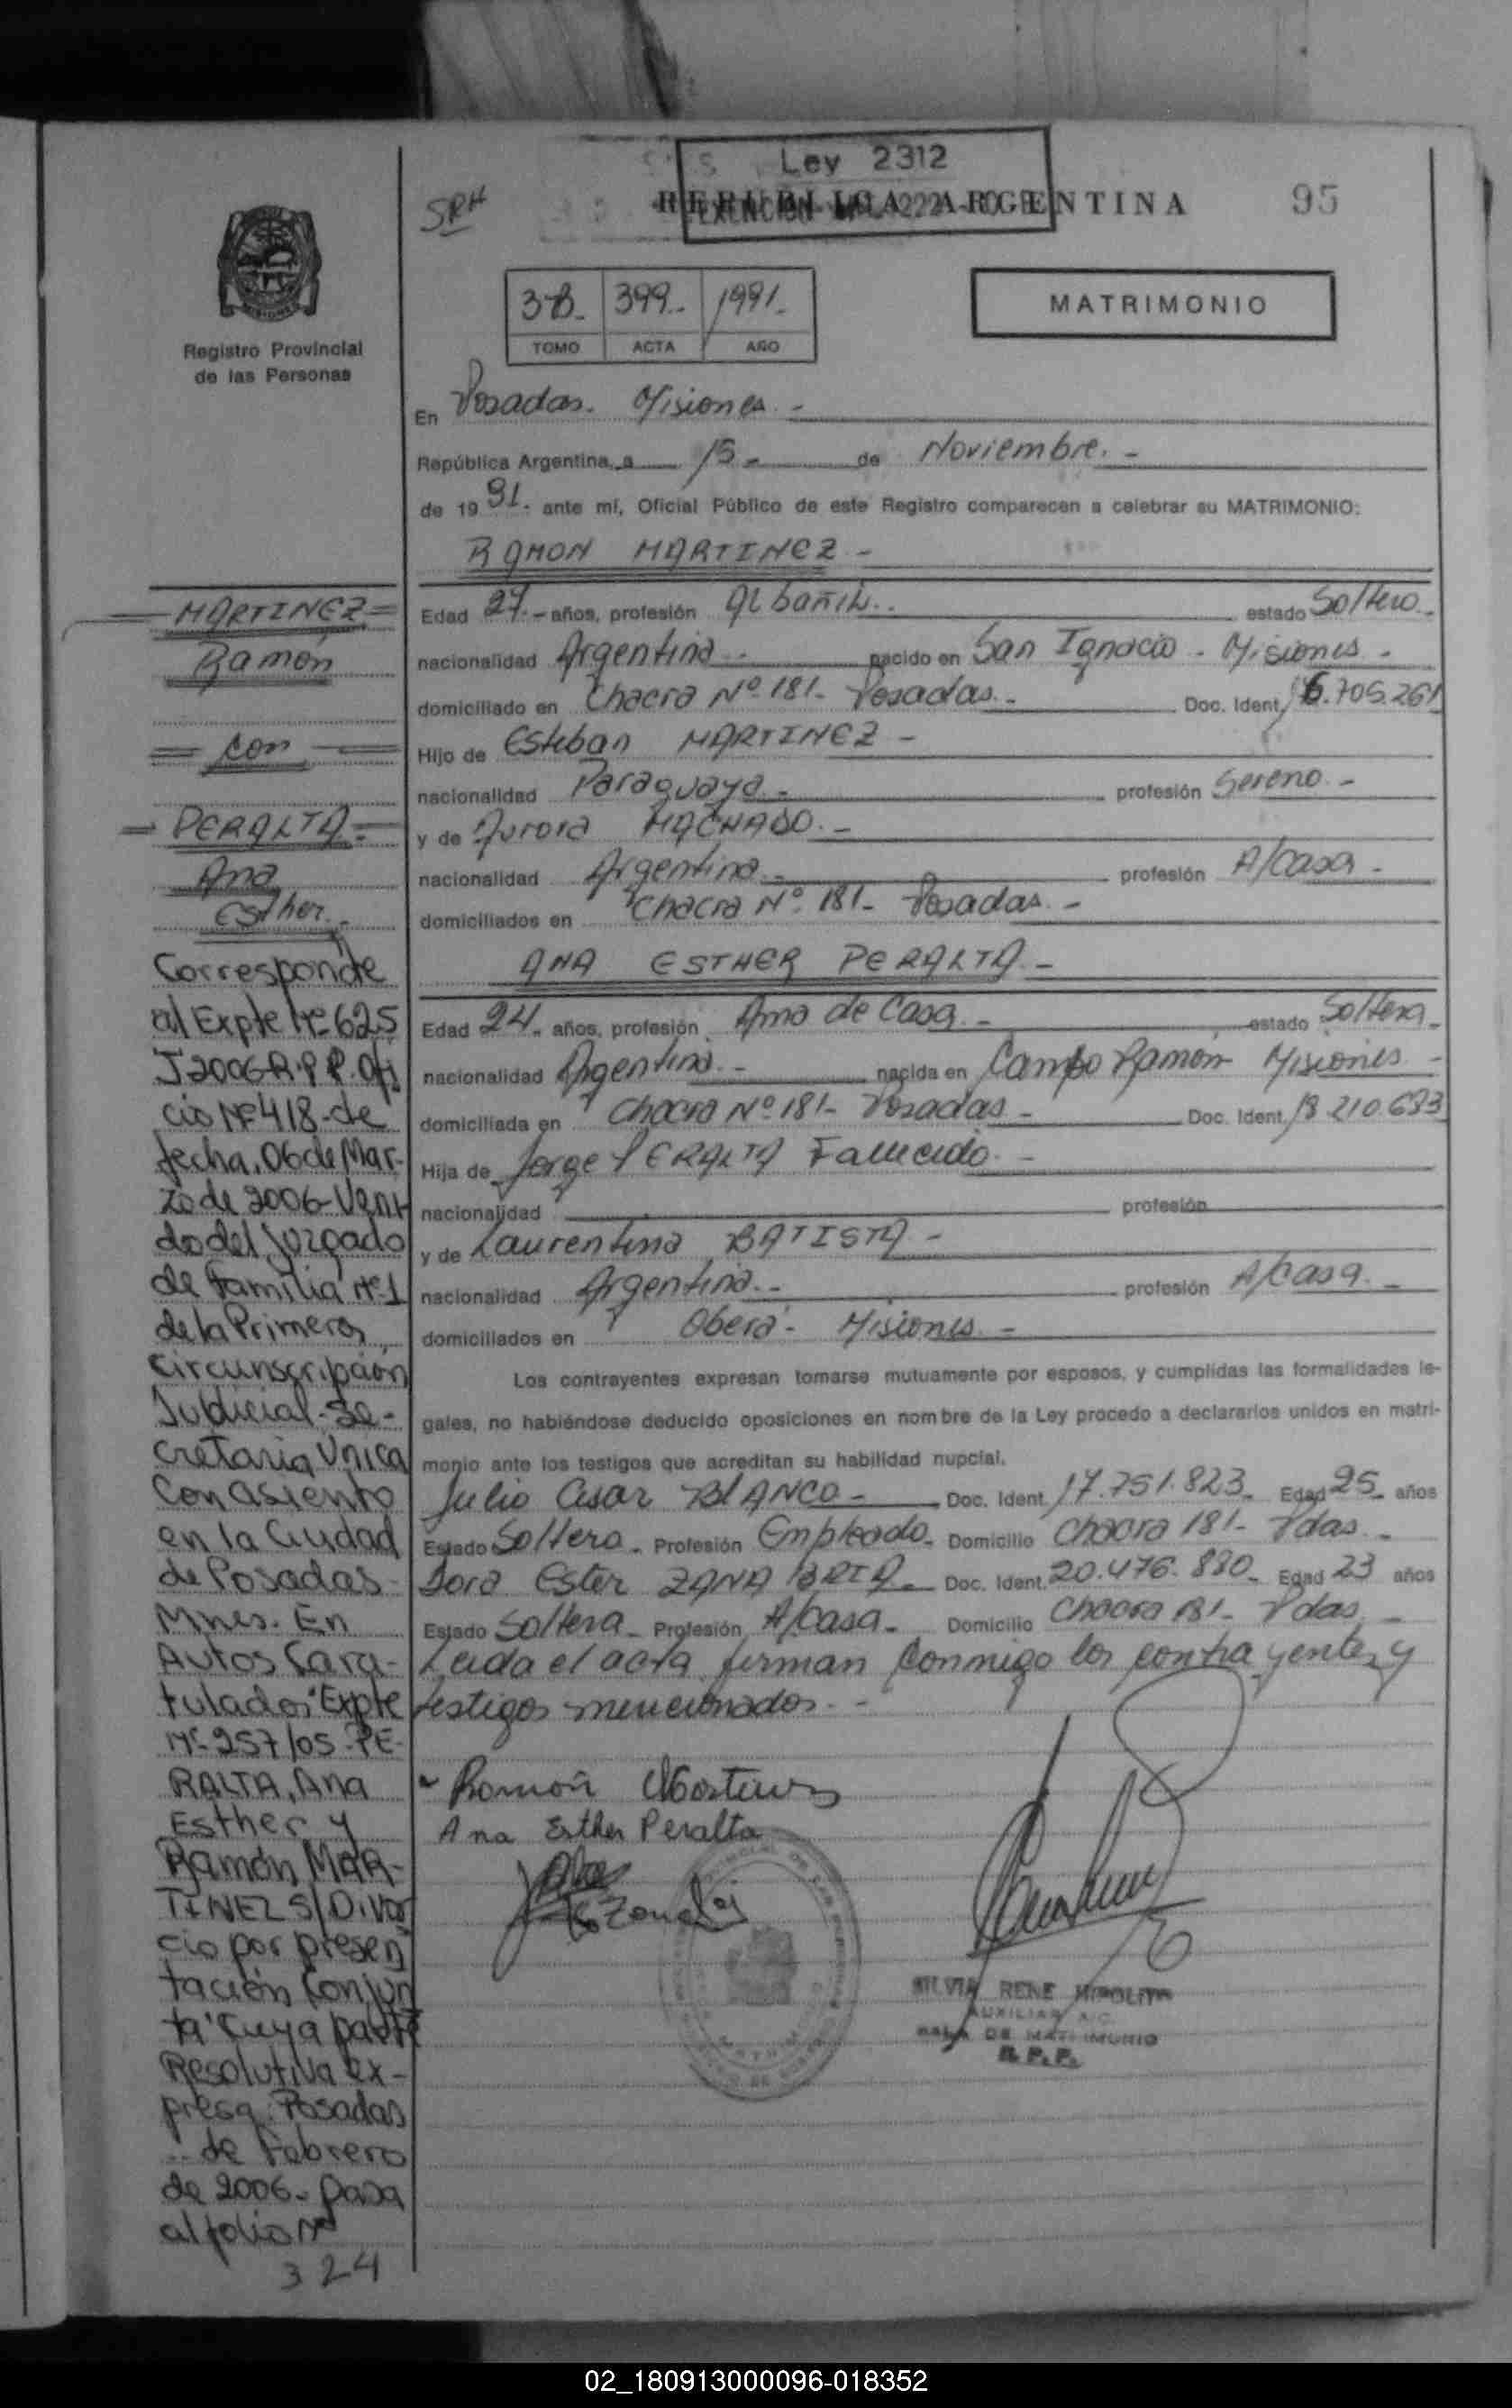 Ley 2312
REPUBLICA ARGENTINA
95
SRH
399.. 1991.-
TOMO ACTA AÑO
MATRIMONIO
MISIONES
Registro Provincial
de las Personas
En Posadas. Misiones.-
República Argentina, a 15.- de Noviembre.-
de 19 91. ante mí, Oficial Público de este Registro comparecen a celebrar su MATRIMONIO:
RAMON MARTINEZ -
Edad 27.- años, profesión Albañil.. estado Soltero.-
nacionalidad Argentina.- nacido en San Ignacio - Misiones -
domiciliado en Chacra Nº 181- Posadas.- Doc. Ident. 16.705.261
Hijo de Esteban MARTINEZ -
nacionalidad Paraguaya.- profesión Sereno.-
y de Aurora MACHADO.-
nacionalidad Argentina.- profesión A/Casa -
domiciliados en Chacra Nº 181- Posadas.-
ANA ESTHER PERALTA.-
Edad 24.- años, profesión Ama de Casa.- estado Soltera.-
nacionalidad Argentina.- nacida en Campo Ramón Misiones -
domiciliada en Chacra Nº 181- Posadas - Doc. Ident. 18.210.633
Hija de Jorge PERALTA Fallecido.-
nacionalidad profesión
y de Laurentina BATISTA -
nacionalidad Argentina.- profesión A/casa.-
domiciliados en Oberá- Misiones.-
Los contrayentes expresan tomarse mutuamente por esposos, y cumplidas las formalidades le-
gales, no habiéndose deducido oposiciones en nombre de la Ley procedo a declararlos unidos en matri-
monio ante los testigos que acreditan su habilidad nupcial.
Julio Cesar BLANCO - Doc. Ident. 17.751.823- Edad 25- años
Estado Soltero- Profesión Empleado- Domicilio Chacra 181- Pdas.-
Dora Ester ZANABRIA- Doc. Ident. 20.476.880- Edad 23 años
Estado Soltera- Profesión A/Casa- Domicilio Chacra 181- Pdas.-
Leida el acta firman conmigo los contrayentes y
testigos mencionados.-
Ramón Martinez
Ana Esther Peralta
SILVIA RENE HIPOLITO
AUXILIAR
SALA DE MATRIMONIO
R. P. P.
MARTINEZ
Ramón
con
PERALTA
Ana
Esther.-
Corresponde
al Expte Nº 625
J2006-R.P.P. Ofi
cio Nº 418-de
fecha, 06 de Mar-
zo de 2006-Veni
do del Juzgado
de Familia Nº1
de la Primera
Circunscripción
Judicial-Se-
cretaria Unica
Con asiento
en la Ciudad
de Posadas-
Mnes. En
Autos Cara-
tulados "Expte
Nº 257/05-PE-
RALTA, Ana
Esther y
Ramón MAR-
TINEZ S/Divor
cio por presen
tación Conjun
ta" Cuya parte
Resolutiva ex-
presa: Posadas
.. de Febrero
de 2006- pasa
al folio Nº
324
02_180913000096-018352